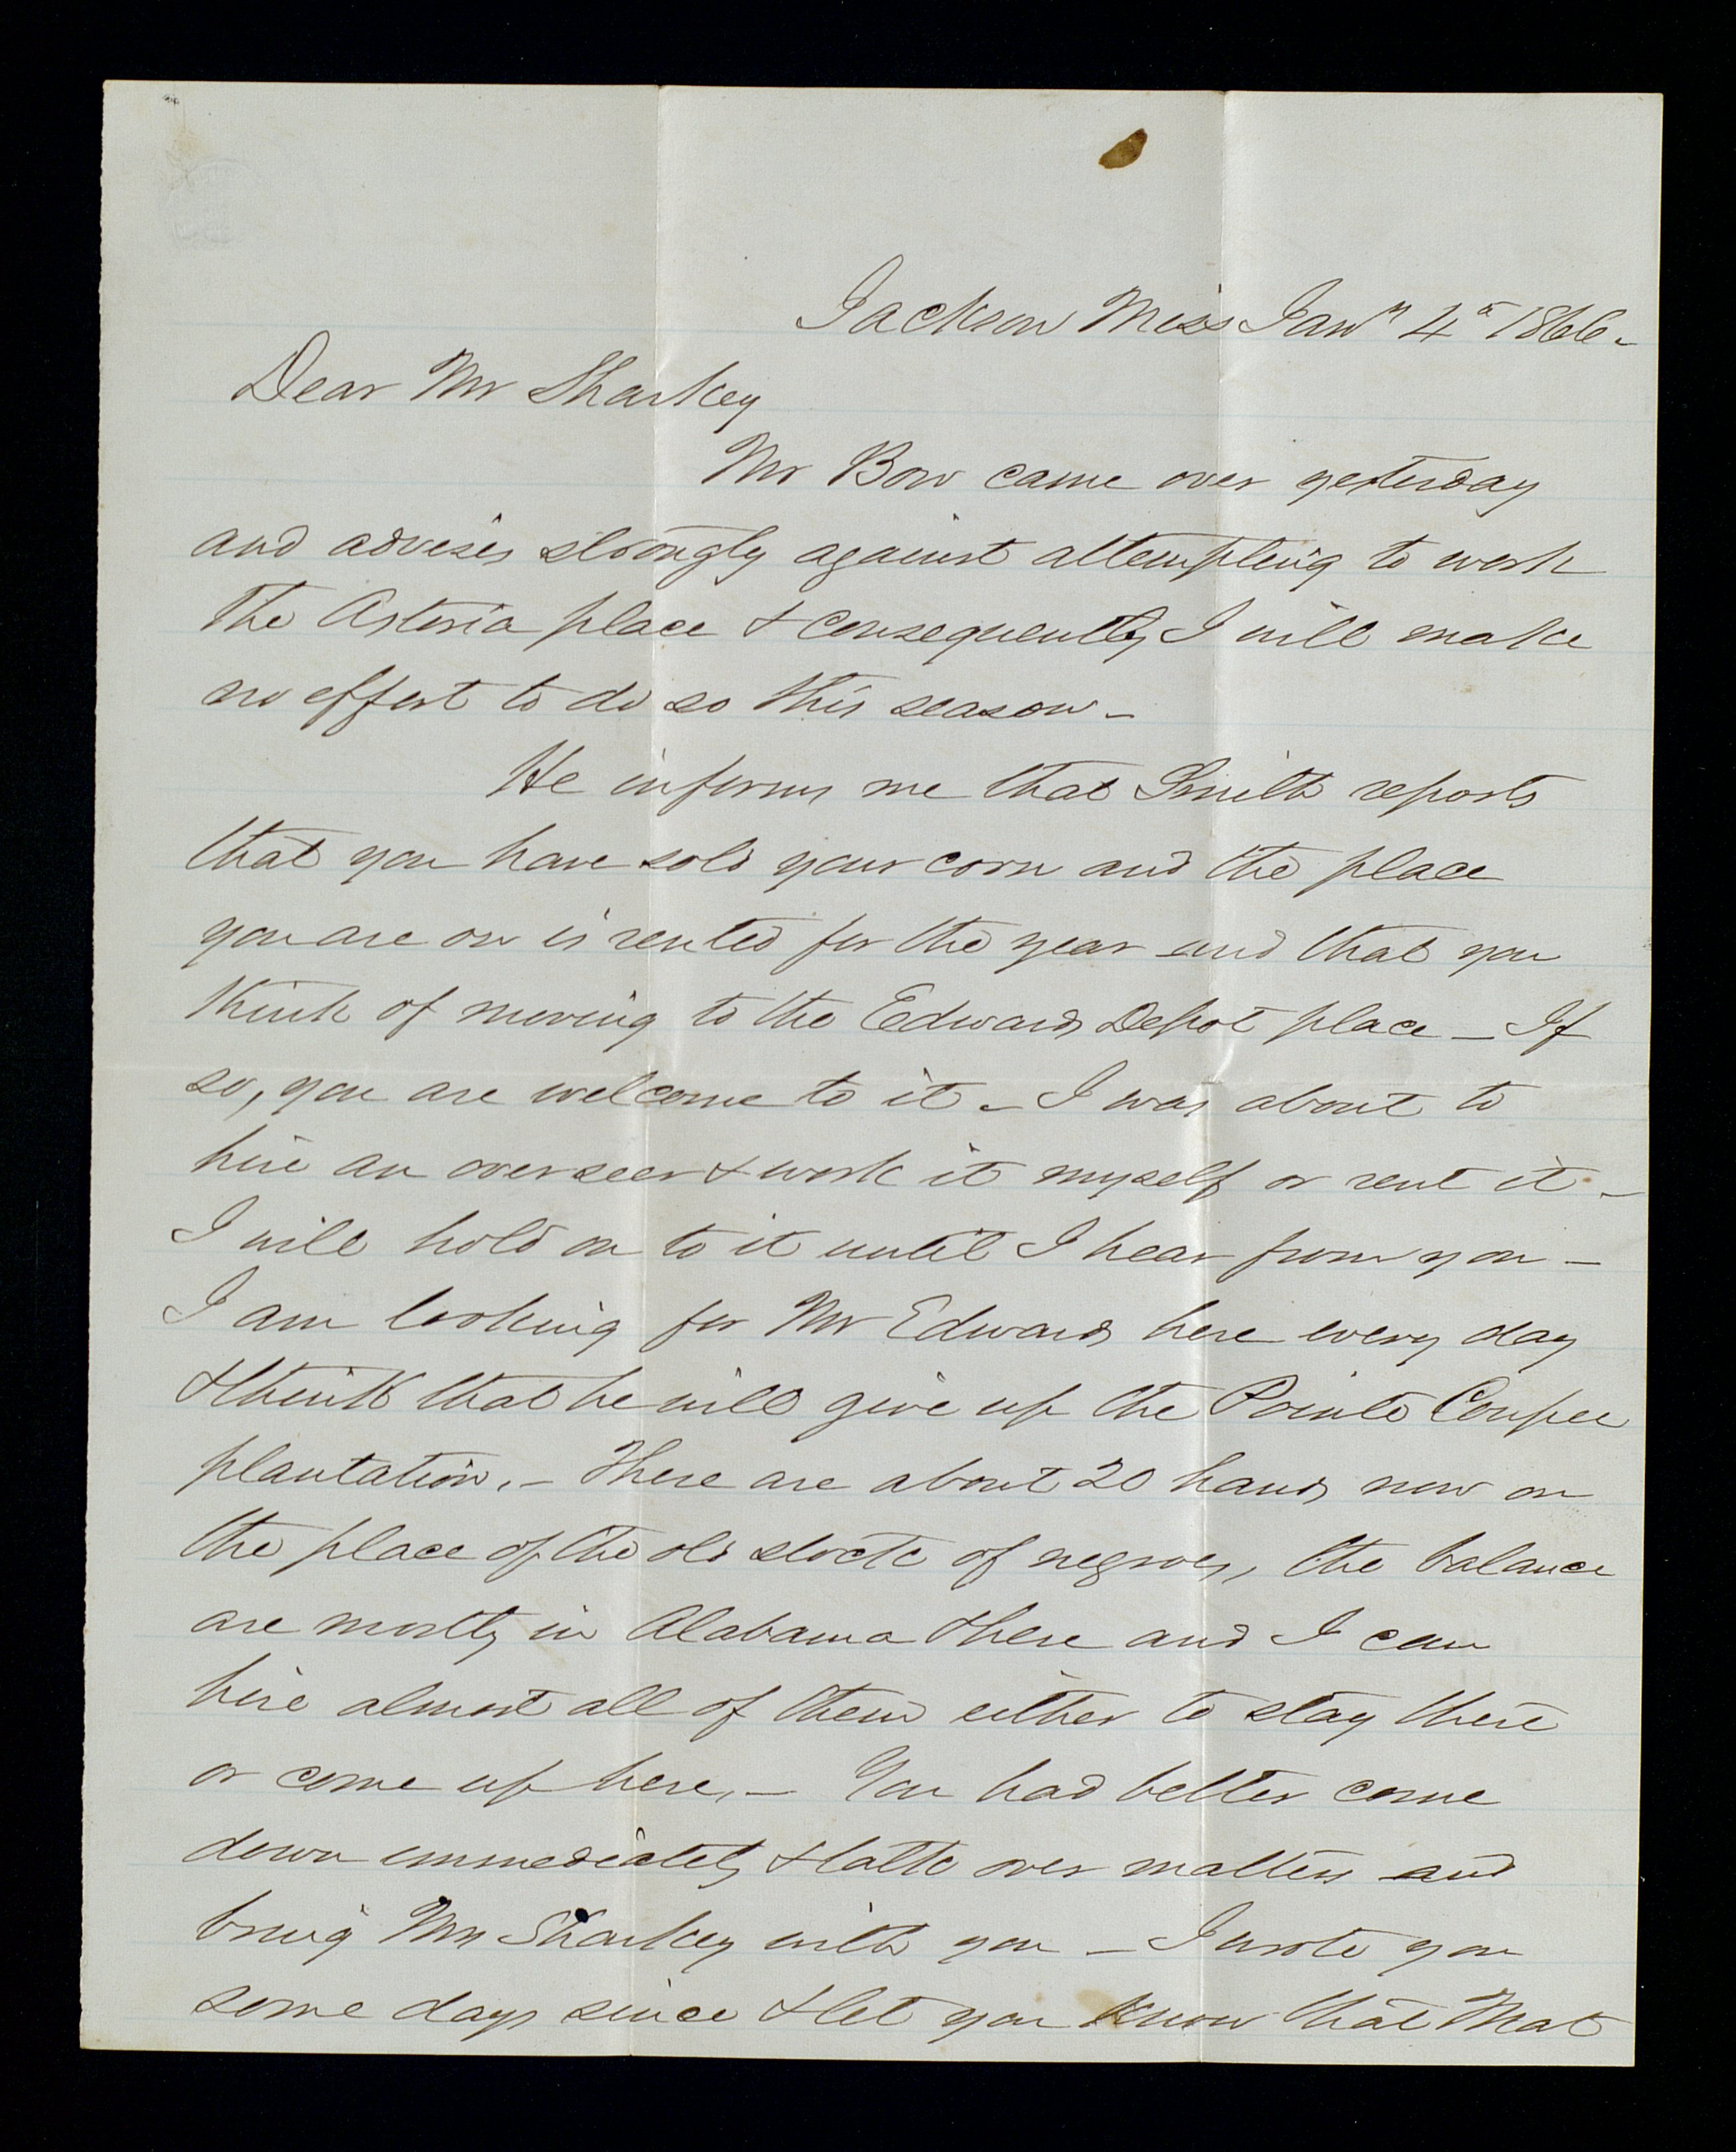 Jackson Miss Jany 4th 1866-
Dear Mr Sharkey
Mr Bow came over yesterday
and advises strongly against attempting to work
the Astoria place & consequently I will make
no effort to do so this season-
He informs me that Smith reports
that you have sold your corn and the place
you are on is rented for the year and that you
think of moving to the Edwards Depot place - If
so, you are welcome to it - I was about to
hire an overseer & work it myself or rent it -
I will hold on to it until I hear from you -
I am looking for Mr Edwards here every day
& think that he will give up the Pointe Coupee
plantation, - There are about 20 hands now on
the place of the old stock of negroes, the balance
are mostly in Alabama & here and I can
hire almost all of them either to stay there
or come up here, - You had better come
down immediately & talk over matters and
bring Mrs Sharkey with you - I wrote you
some days since & let you know that Mat